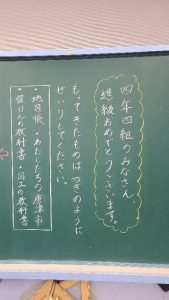 四年四組のみなさん、
進級おめでとうございます。
もってきたものはつぎのように
せいりしてください。
・地図帳・わたしたちの唐津市
・保けんの教科書・図工の教科書